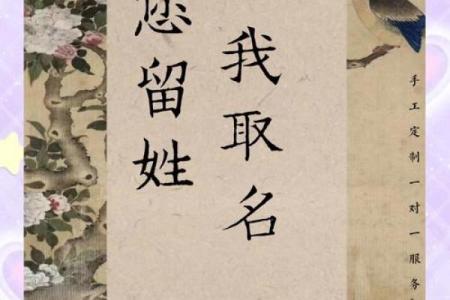 您留姓
我取名
手工定制一对一服务